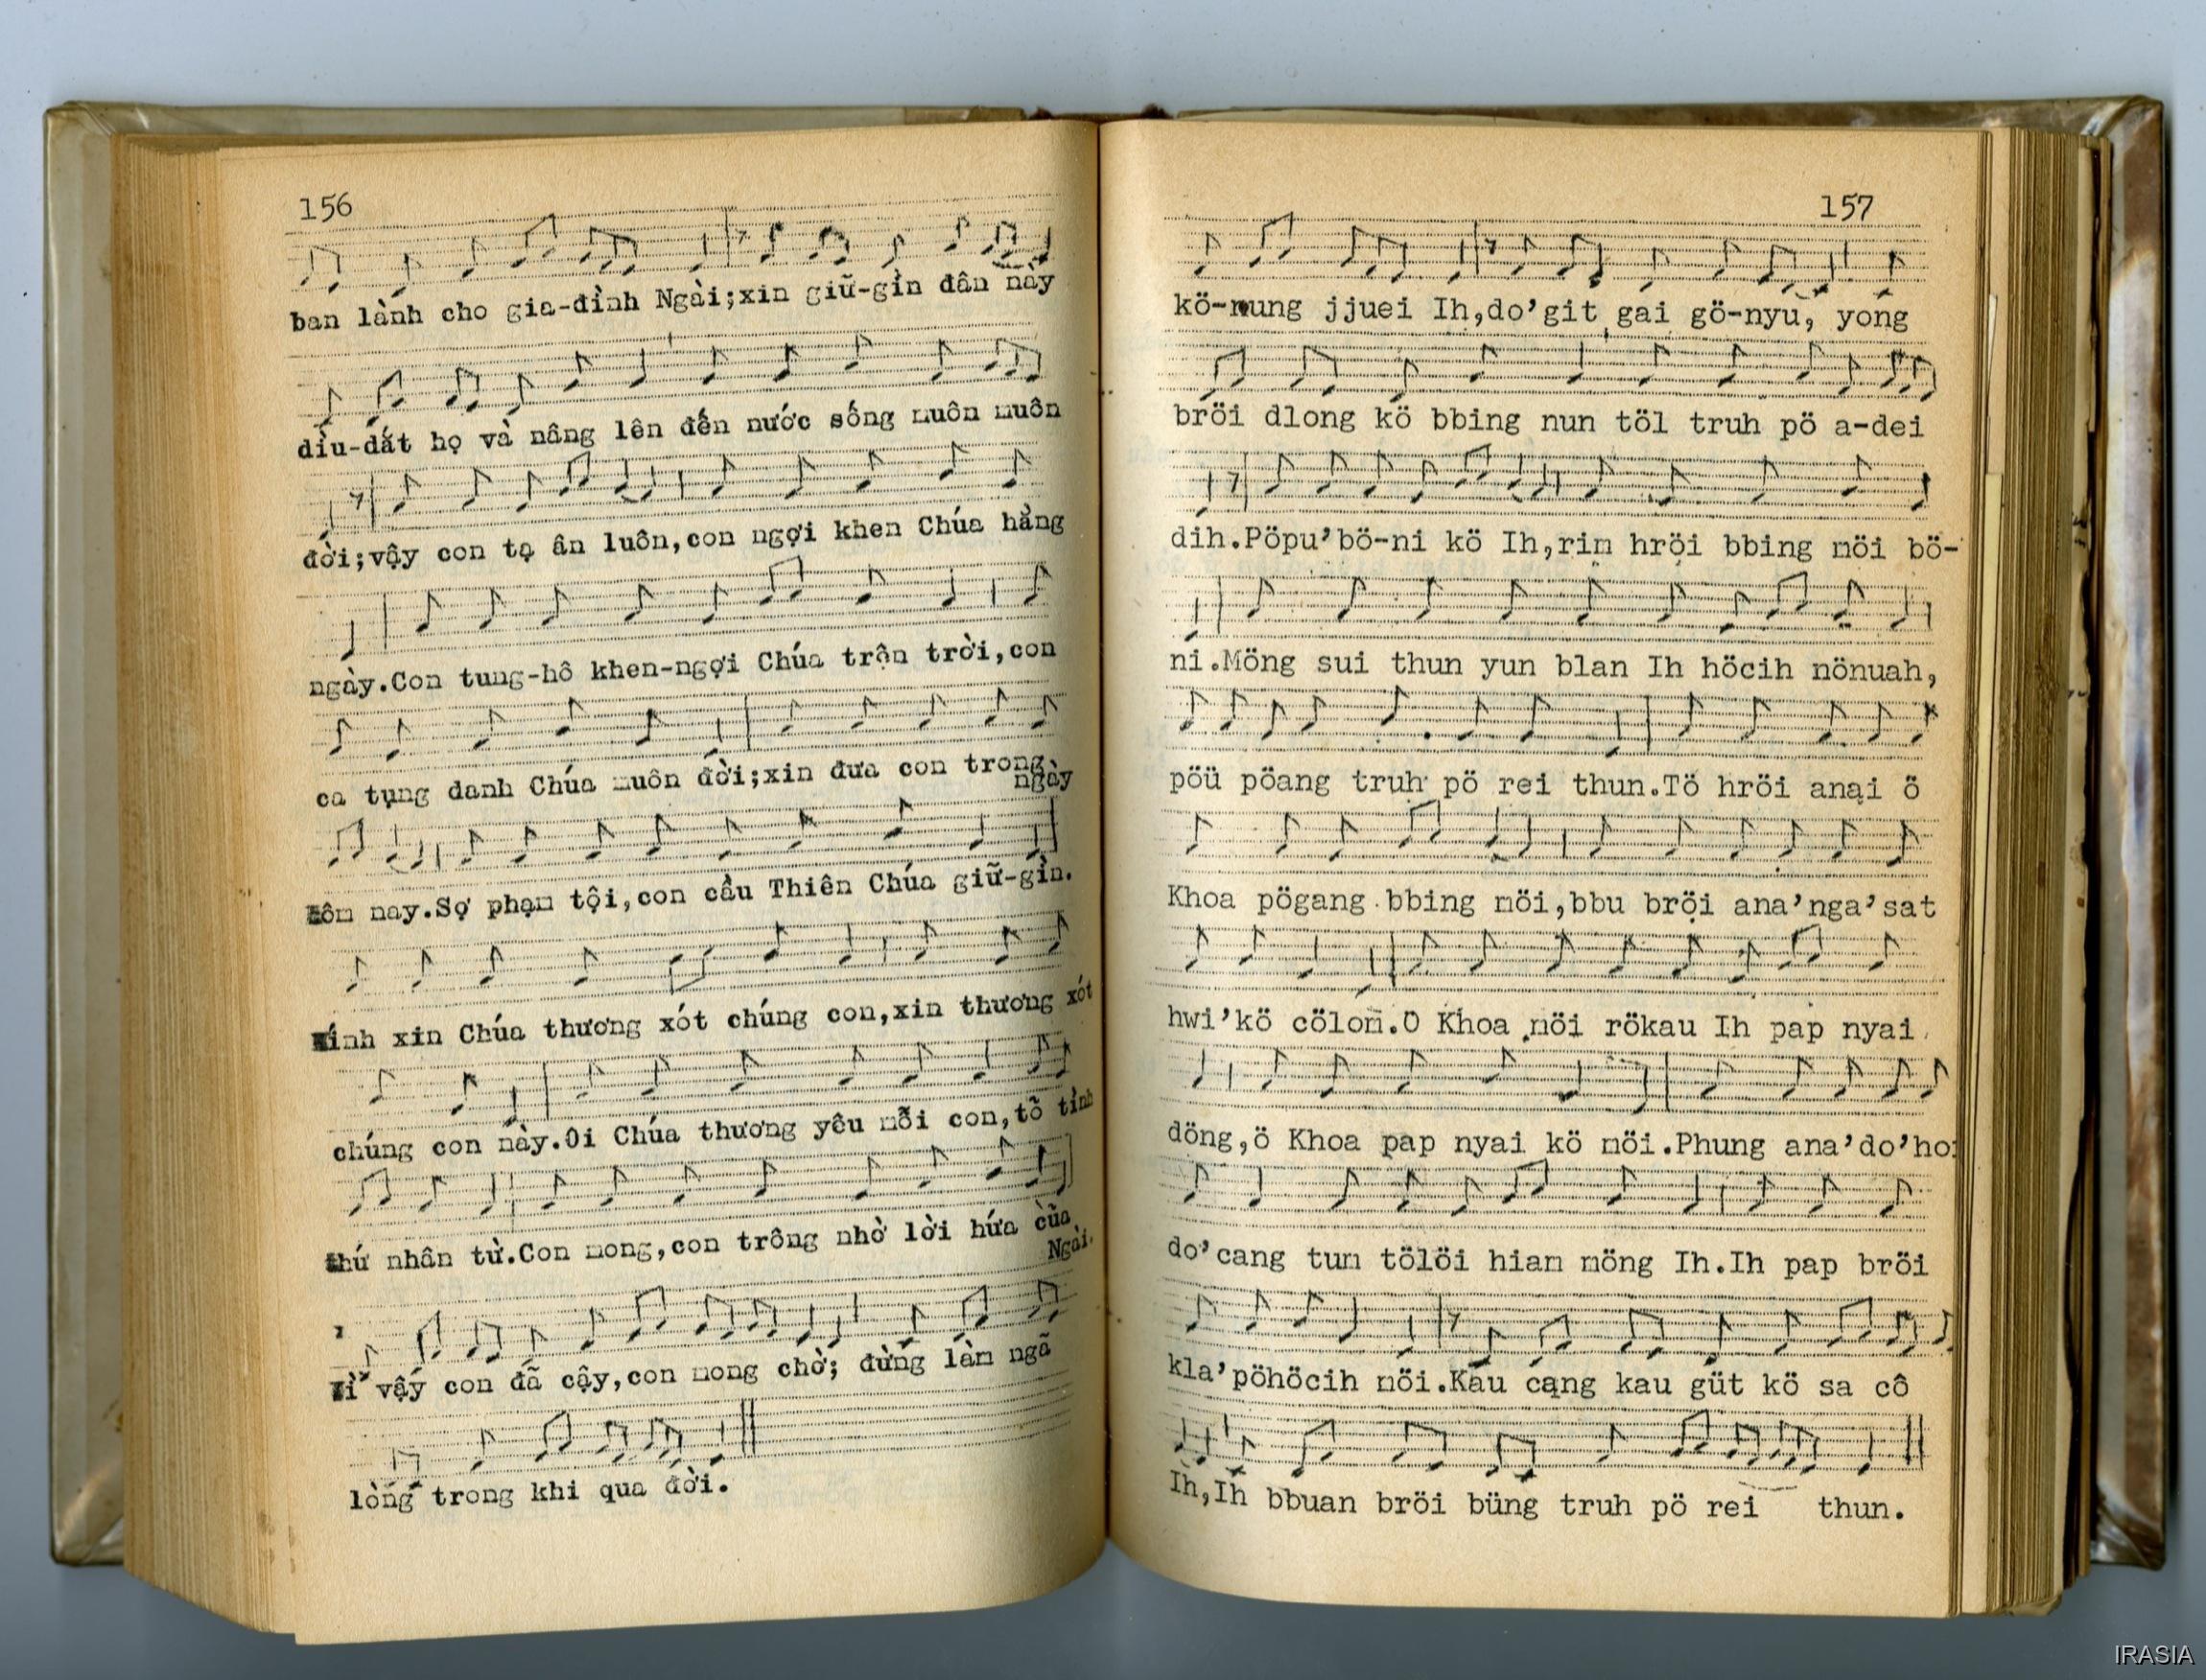 156
ban lành cho gia-đình Ngài;xin giữ-gìn dân này
dìu-dắt họ và nâng lên đến nước sống muôn muôn
đời;vậy con tạ ân luôn,con ngợi khen Chúa hằng
ngày.Con tung-hô khen-ngợi Chúa trận trời,con
ca tụng danh Chúa muôn đời;xin đưa con trong
ngày
hôm nay.Sợ phạm tội,con cầu Thiên Chúa giữ-gìn.
Kính xin Chúa thương xót chúng con,xin thương xót
chúng con này.Oi Chúa thương yêu mỗi con,tỏ tình
thứ nhân từ.Con mong,con trông nhờ lời hứa của
Ngài.
Vì vậy con đã cậy,con mong chờ; đừng làm ngã
lòng trong khi qua đời.
157
kö-nung jjuei Ih,do'git gai gö-nyu, yong
bröi dlong kö bbing nun töl truh pö a-dei
dih.Pöpu'bö-ni kö Ih,rim hröi bbing möi bö-
ni.Möng sui thun yun blan Ih höcih nönuah,
pöü pöang truh pö rei thun.Tö hröi anai ö
Khoa pögang bbing möi,bbu bröi ana'nga'sat
hwi'kö cölom.O Khoa möi rökau Ih pap nyai
döng,ö Khoa pap nyai kö möi.Phung ana'do'hoi
do'cang tum tölöi hiam möng Ih.Ih pap bröi
kla'pöhöcih möi.Kau cang kau güt kö sa cô
Ih,Ih bbuan bröi büng truh pö rei thun.
IRASIA